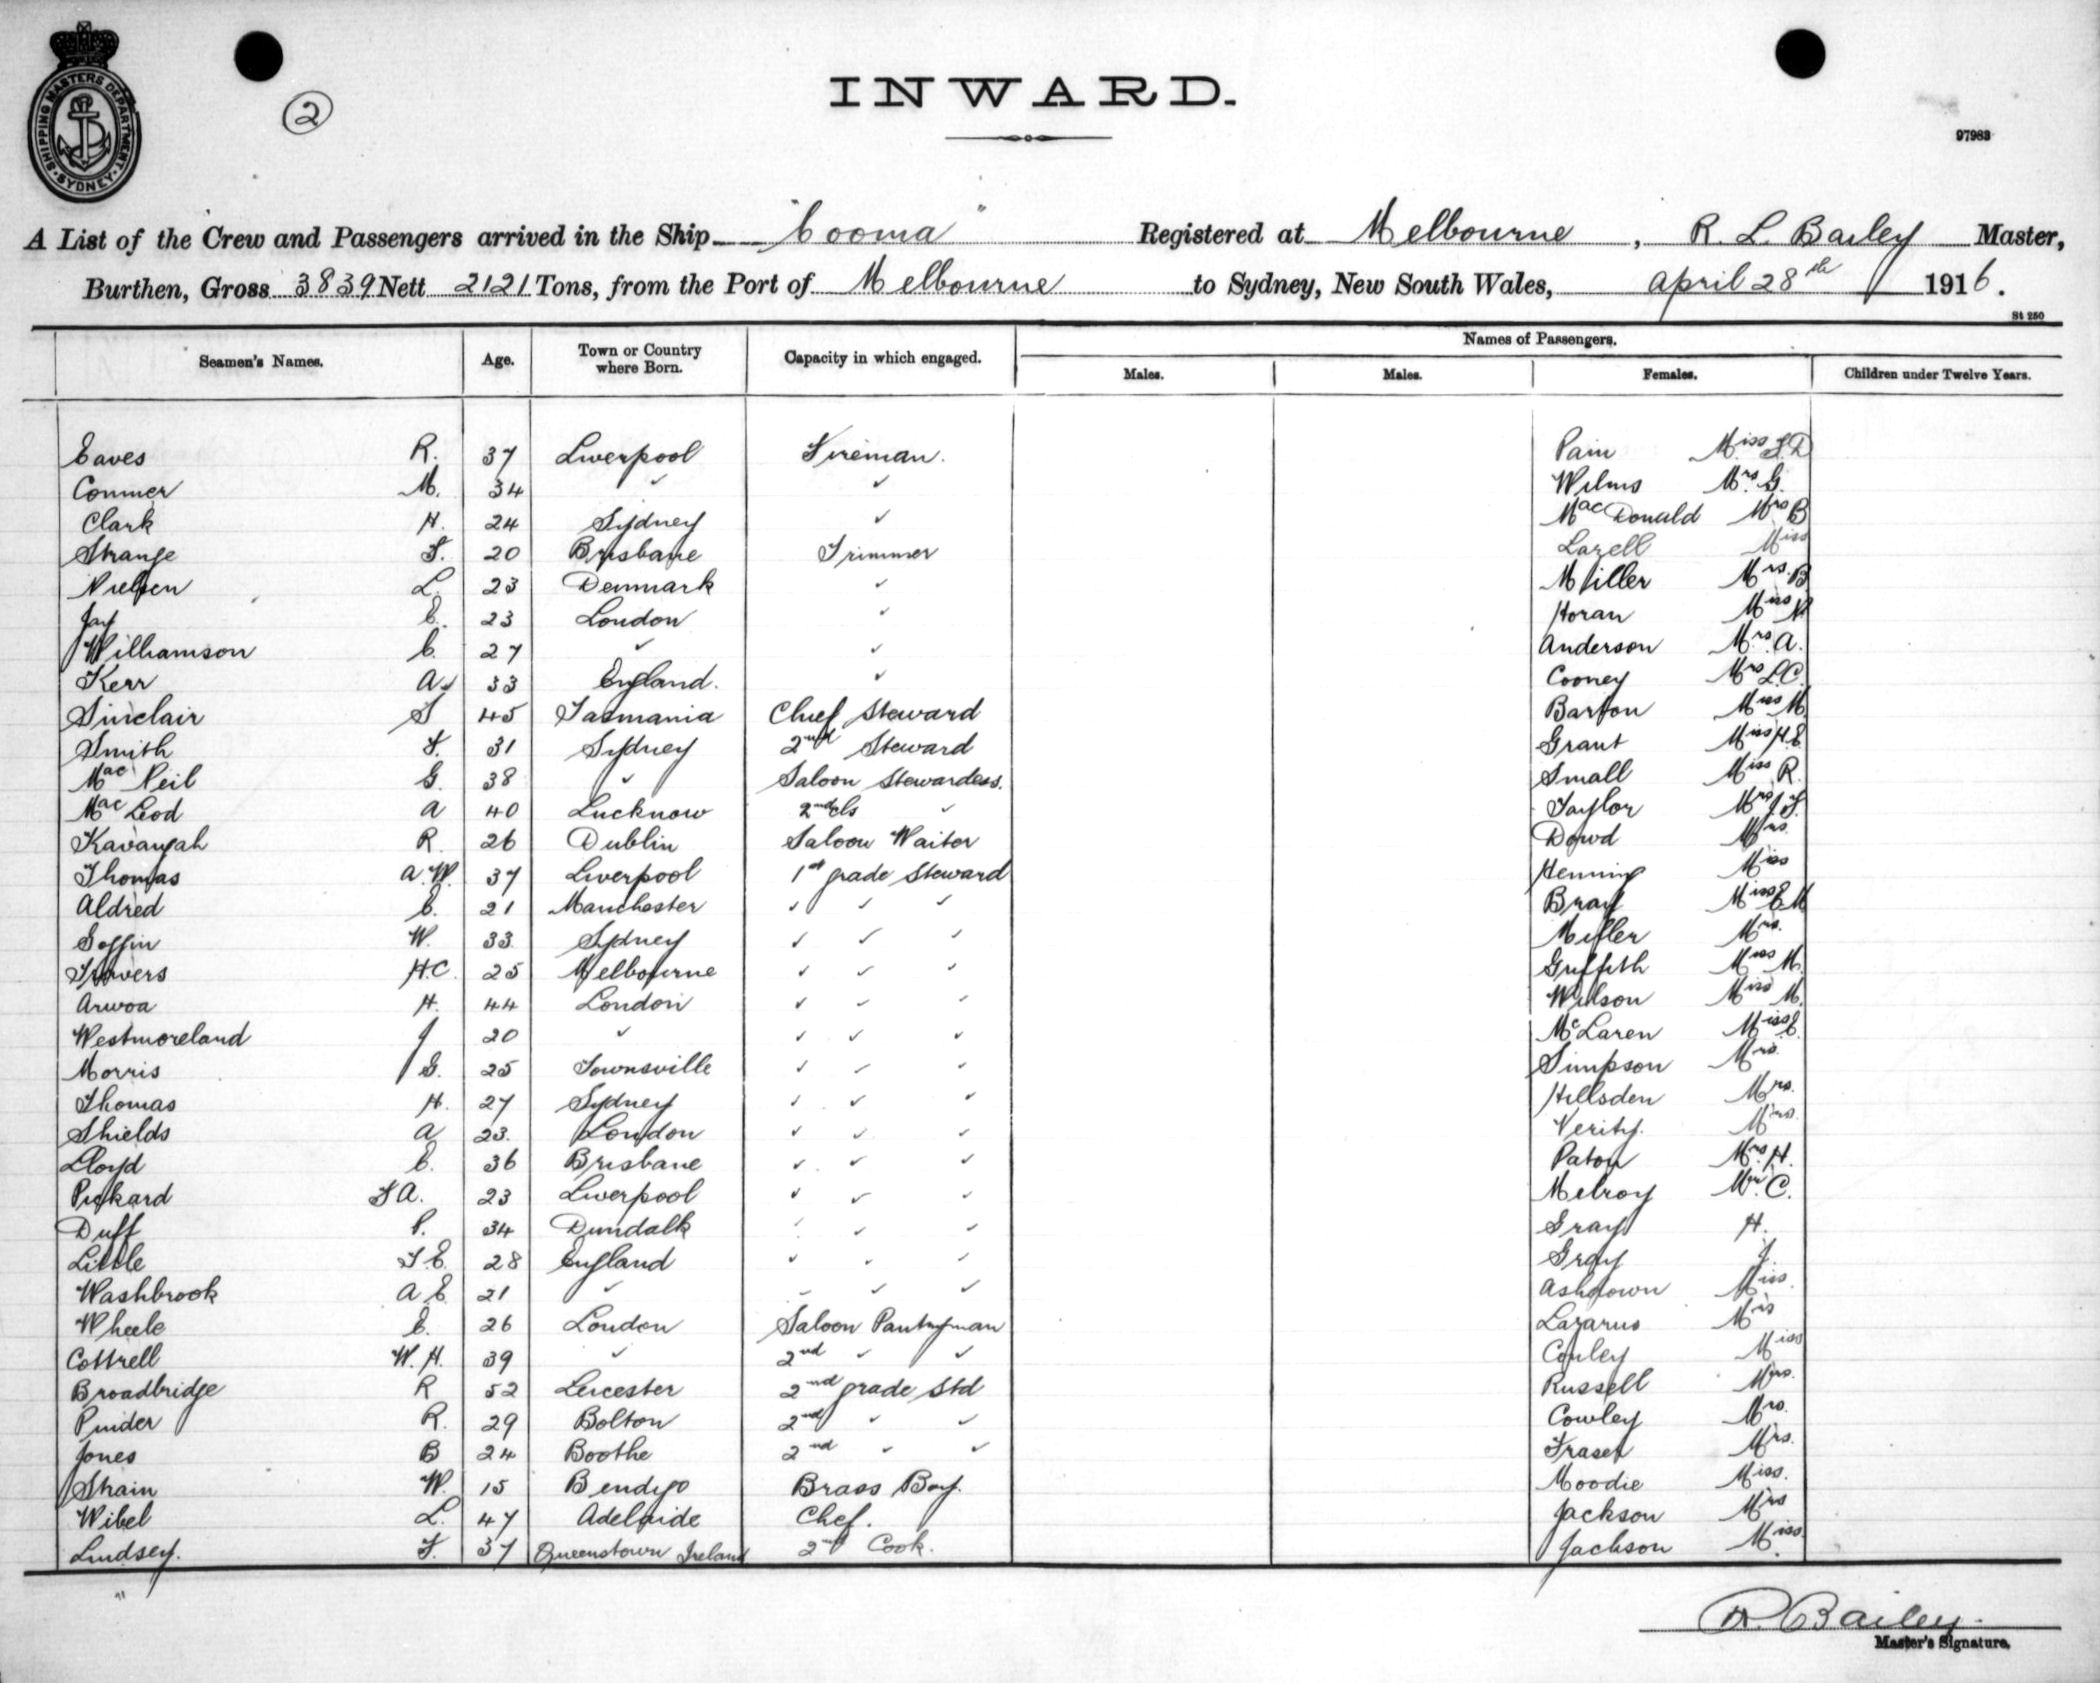 SHIPPING MASTERS DEPARTMENT. SYDNEY
2
INWARD.
97983
A List of the Crew and Passengers arrived in the Ship "Cooma" Registered at Melbourne, R. L. Bailey Master,
Burthen, Gross 3839 Nett 2121 Tons, from the Port of Melbourne to Sydney, New South Wales, April 28th 1916.
St 250
Seamen's Names. Age. Town or Country where Born. Capacity in which engaged. Names of Passengers.
Males. Males. Females. Children under Twelve Years.
Eaves R. 37 Liverpool Fireman. Pain Miss
Conner M. 34 " " Wilms Mrs G.
Clark H. 24 Sydney " MacDonald Mrs B
Strange F. 20 Brisbane Trimmer Lazell Miss
Nielsen L. 23 Denmark " Miller Mrs. B
Jay E. 23 London " Horan Miss N
Williamson C. 27 " " Anderson Mrs. A.
Kerr A 33 England. " Cooney Mrs L.C.
Sinclair S 45 Tasmania Chief Steward Barton Miss M.
Smith F. 31 Sydney 2nd Steward Grant Miss H.E.
MacNeil G. 38 " Saloon Stewardess. Small Miss R.
MacLeod A 40 Lucknow 2nd cls " Taylor Mrs J.F.
Kavanah R. 26 Dublin Saloon Waiter Dowd Mrs.
Thomas A.W. 37 Liverpool 1st grade Steward Henning Miss
Aldred E. 21 Manchester " " " Bray Miss E M
Goffin W. 33 Sydney " " " Miller Mrs.
Travers H.C. 25 Melbourne " " " Griffith Miss M.
Arwoa H. 44 London " " " Wilson Miss M.
Westmoreland J 20 " " " " McLaren Miss E.
Morris G. 25 Townsville " " " Simpson Mrs.
Thomas H. 27 Sydney " " " Hillsden Mrs.
Shields A 23. London " " " Verity. Mrs.
Lloyd E. 36 Brisbane " " " Paton Mrs. H.
Pickard F A. 23 Liverpool " " " Melroy C.
Duff P. 34 Dundalk " " " Gray H.
Little F.E. 28 England " " " Gray J.
Washbrook A E 21 " " " " Ashdown Miss.
Wheele E. 26 London Saloon Pantryman Lazarus Mrs
Cottrell W. H. 39 " 2nd " " Conley Miss
Broadbridge R 52 Leicester 2nd grade Std Russell Mrs.
Pinder R. 29 Bolton 2nd " " Cowley Mrs.
Jones B 24 Boothe 2nd " " Fraser Mrs.
Strain W. 15 Bendigo Brass Boy. Moodie Miss.
Wibel L. 47 Adelaide Chef. Jackson Mrs
Lindsey. F. 37 Queenstown Ireland 2nd Cook. Jackson Miss.
R. Bailey.
Master's Signature.